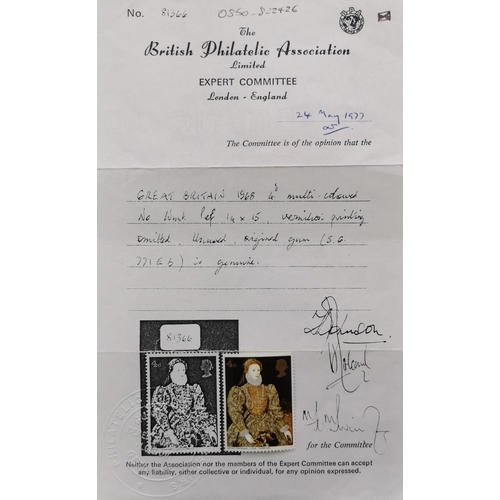 No. 81366
The
British Philatelic Association
Limited
EXPERT COMMITTEE
London - England
24 May 1977
The Committee is of the opinion that the
GREAT BRITAIN 1968 4d multi-coloured
No Wmk Perf 14 x 15, vermilion printing
omitted, Unused, original gum (S.G.
771Eb) is genuine.
81366
for the Committee
Neither the Association nor the members of the Expert Committee can accept
any liability, either collective or individual, for any opinion expressed.